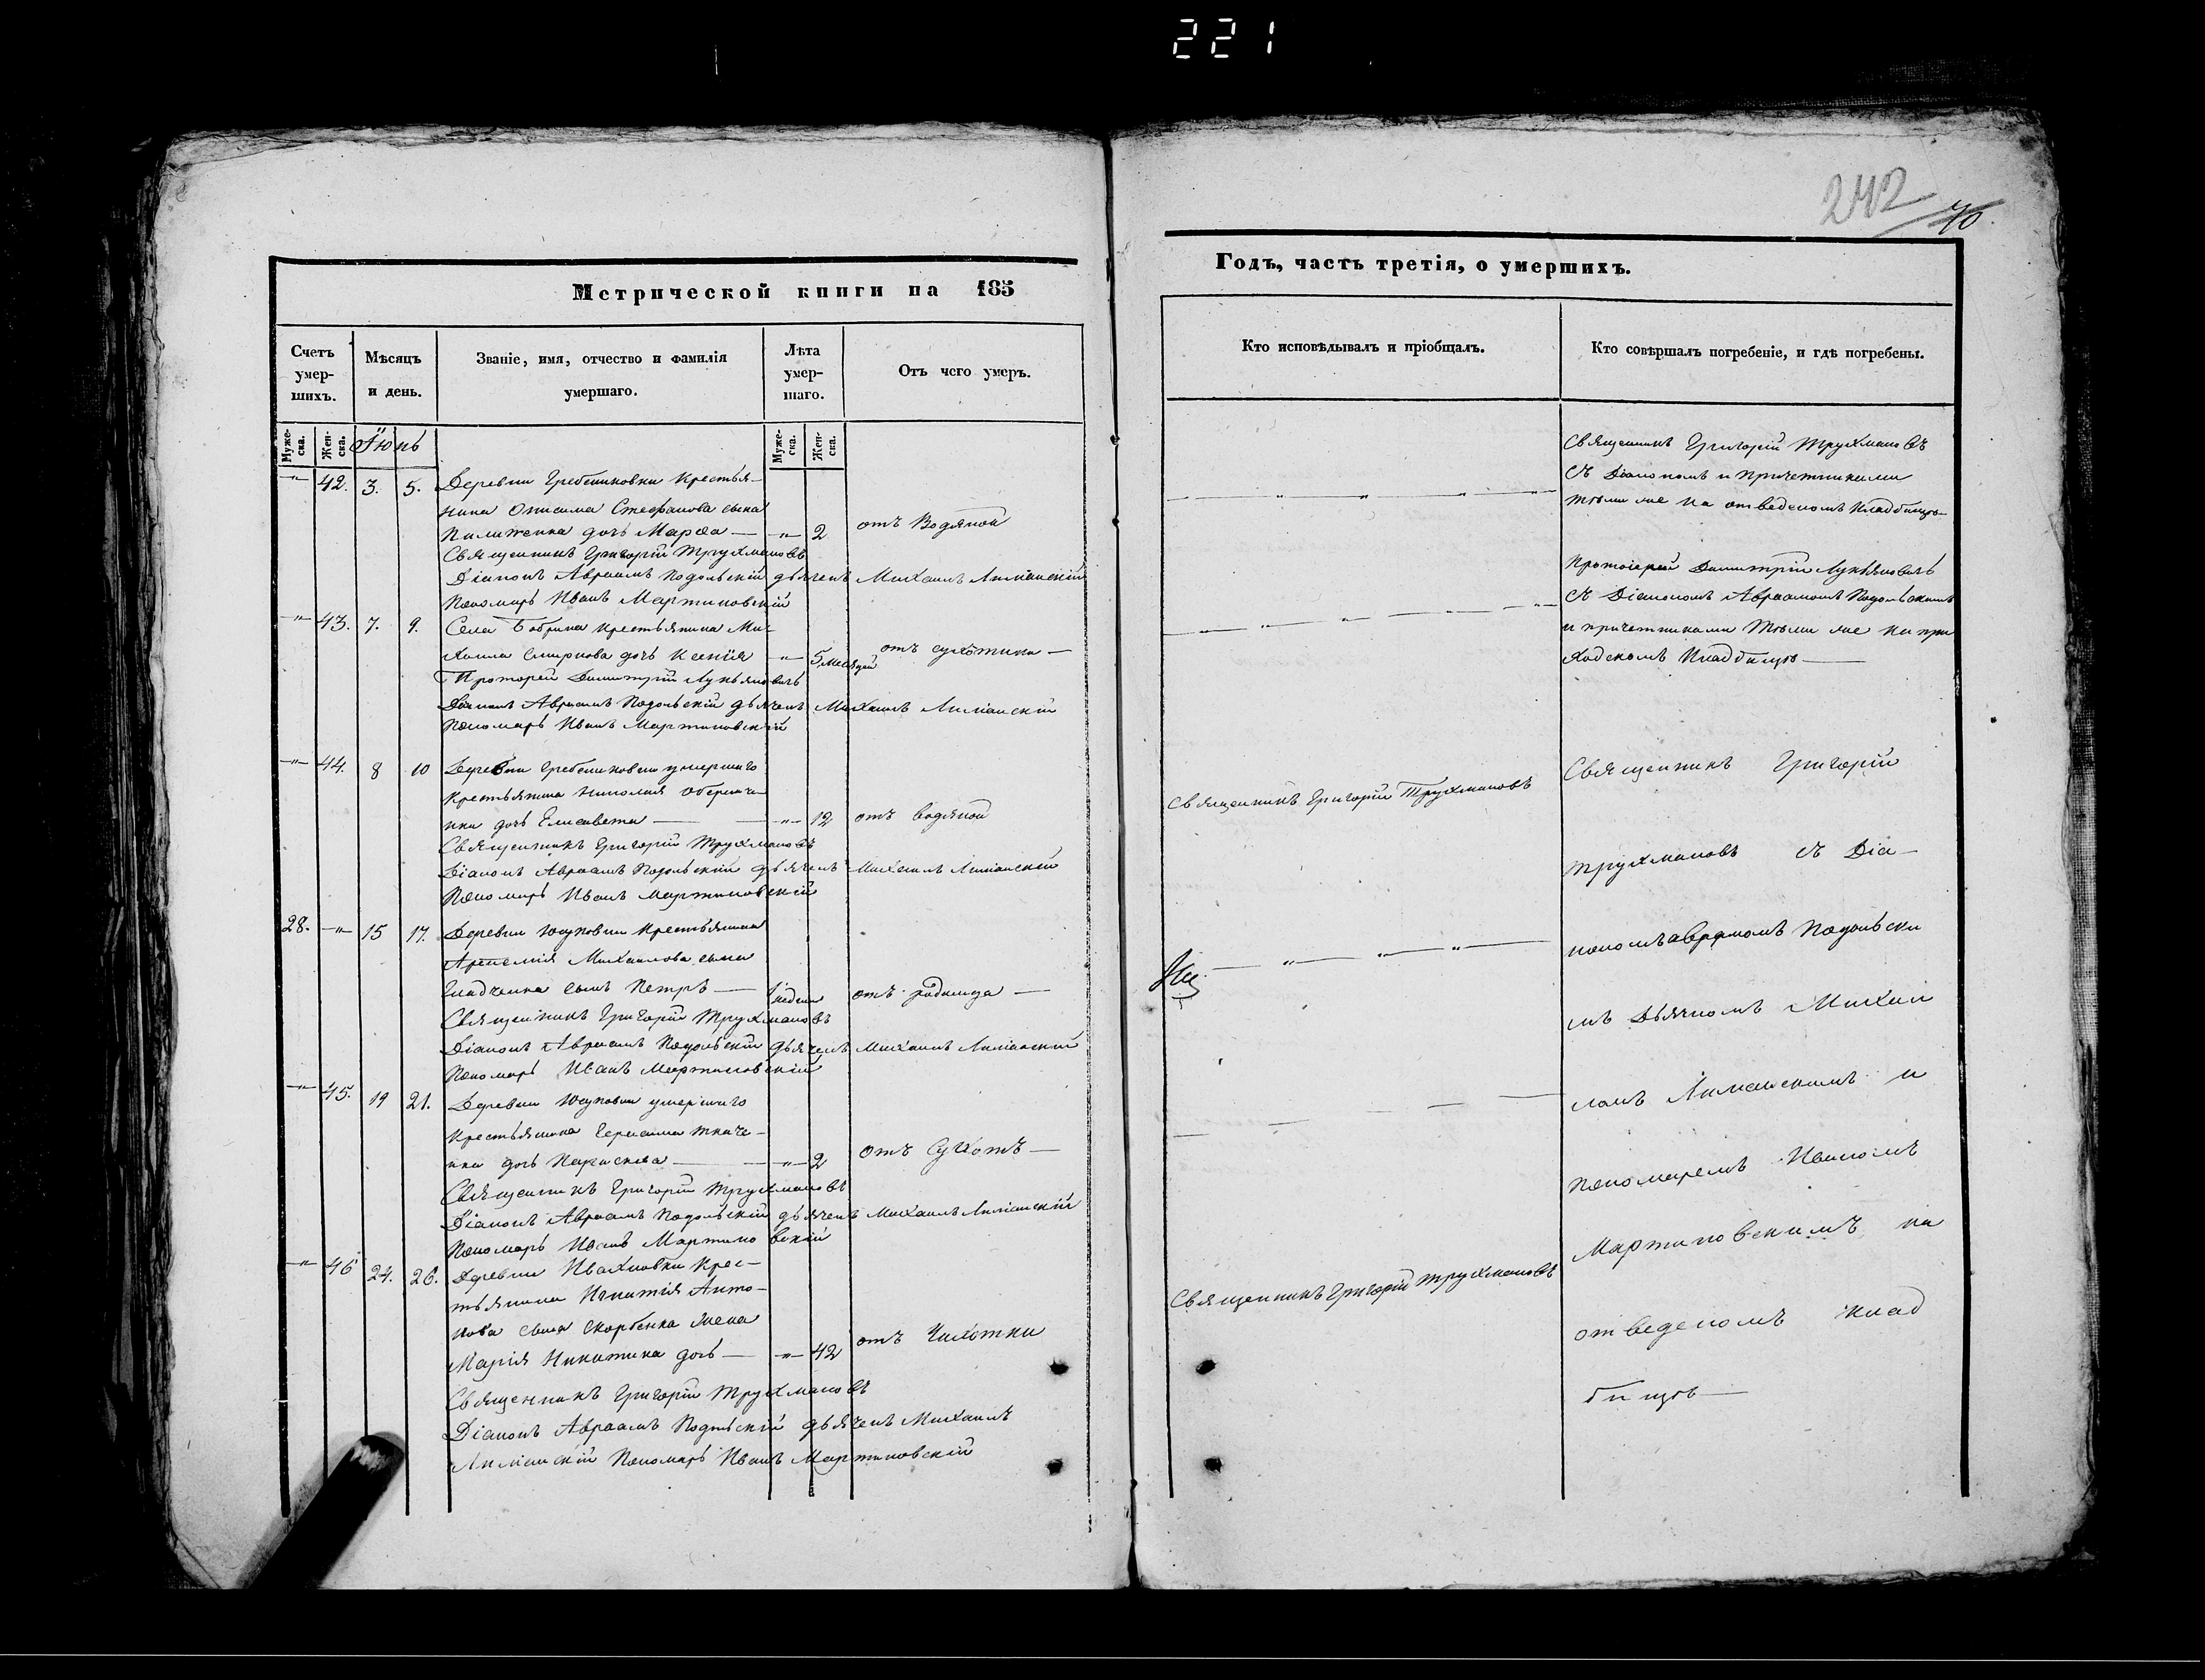 221
242
70
Метрической книги на 185
Счетъ
умер-
шихъ.
Мѣсяцъ
и день.
Званіе, имя, отчество и фамилія
умершаго.
Лѣта
умер-
шаго.
Отъ чего умеръ.
Муже-
ска.
Жен-
ска.
Іюнь
Муже-
ска.
Жен-
ска.
-"- 42. 3. 5. Деревни Гребениковки крестья-
нина Онисима Стефанова сына
дочь Марфа -"- 2 отъ Водяной
Священникъ Григорій Трухмановъ
Діаконъ Авраамъ Подольскій дьячекъ Михаилъ Лиманскій
Пономарь Иванъ Мартиновскій
-"- 43. 7. 9. Села Бобрика крестьянина Ми-
хаила Смирнова дочь Ксенія -"- 5 месяцей отъ сухотики
Протоіерей Димитрій Лукьяновичъ
Діаконъ Авраамъ Подольскій дьячекъ Михаилъ Лиманскій
Пономарь Иванъ Мартиновскій
-"- 44. 8 10 Деревни Гребениковки умершаго
крестьянина Николая
нка дочь Елисавета -"- 12 отъ водяной
Священникъ Григорій Трухмановъ
Діаконъ Авраамъ Подольскій дьячекъ Михаилъ Лиманскій
Пономарь Иванъ Мартиновскій
28. -"- 15 17. Деревни Юсуповки крестьянина
Михаилова сына
Гладченка сынъ Петръ отъ родимца
Священникъ Григорій Трухмановъ
Діаконъ Авраамъ Подольскій дьячекъ Михаилъ Лиманскій
Пономарь Иванъ Мартиновскій
-"- 45. 19 21. Деревни Юсуповки умершаго
крестьянина Герасима Ткаче-
нка дочь Параскева -"- 2 отъ Сухотъ
Священникъ Григорій Трухмановъ
Діаконъ Авраамъ Подольскій дьячекъ Михаилъ Лиманскій
Пономарь Иванъ Мартиновскій
-"- 46 24. 26. Деревни Ивахновки крес-
тьянина Игнатія Анто-
нова сына Скорбенка жена
Марія Никитина дочь -"- 42 отъ Чихотки
Священникъ Григорій Трухмановъ
Діаконъ Авраамъ Подольскій дьячекъ Михаилъ
Лиманскій Пономарь Иванъ Мартиновскій
Годъ, часть третія, о умершихъ.
Кто исповѣдывалъ и пріобщалъ.
Кто совѣршалъ погребеніе, и гдѣ погребены.
Священникъ Григорій Трухмановъ
съ Діакономъ и причетниками
тѣми же на отведеномъ кладбищѣ
Протоіерей Димитрій Лукьяновичъ
съ Діакономъ Авраамомъ Подольскимъ
и причетниками тѣми же на при
ходскомъ кладбищѣ
Священникъ Григорій Трухмановъ
Священникъ Григорій
Трухмановъ съ Діа-
кономъ Аврамомъ Подольски
мъ Дьячкомъ Михаи
ломъ Лиманскимъ и
Пономаремъ Иваномъ
Мартиновскимъ на
Священникъ Григорій Трухмановъ
отведеномъ клад
бищѣ